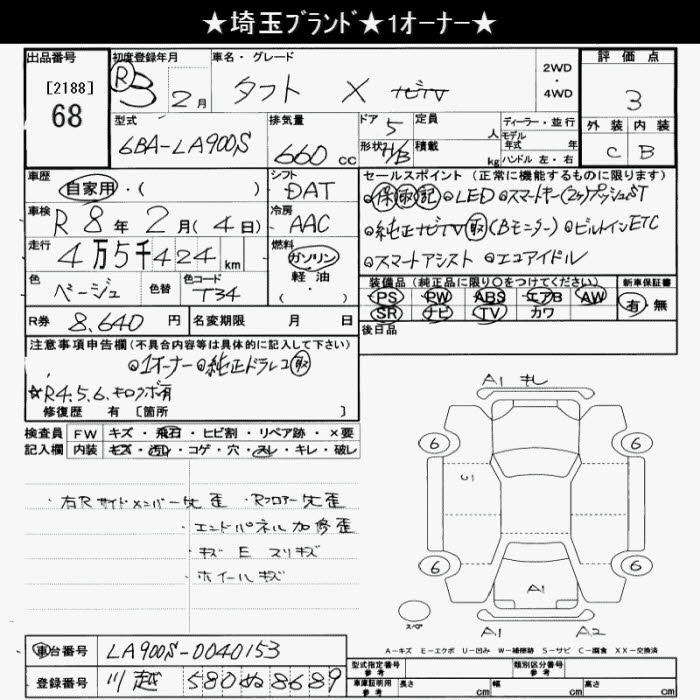 ★埼玉ﾌﾞﾗﾝﾄﾞ★1オーナー★
出品番号
[2188]
68
初度登録年月
R3 2月
車名・グレード
タフト X ナビTV
2WD
・
4WD
評価点
3
外装 内装
C B
型式
6BA-LA900S
排気量
660 cc
ドア 5
定員 人
ディーラー・並行
モデル年式 年
形状 H/B
積載 kg
ハンドル 左・右
車歴
自家用・( )
シフト
DAT
車検
R 8年 2月(4日)
冷房
AAC
走行
4万5千424 km
燃料
ガソリン
軽油
・( )
色
ベージュ
色替
色コード
T34
R券 8,640 円
名変期限 月 日
セールスポイント (正常に機能するものに限ります)
保 取 記 LED スマートキー(2ヶ)プッシュST
純正ナビTV取(Bモニター) ビルトインETC
スマートアシスト エコアイドル
装備品 (純正品に限り○をつけてください)
PS PW ABS エアB AW
SR ナビ TV カワ
新車保証書
有・無
後日品
注意事項申告欄 (不具合内容等は具体的に記入して下さい)
1オーナー 純正ドラレコ取
☆R4.5.6.キロクボ有
修復歴 有 [箇所 ]
検査員記入欄
FW キズ・飛石・ヒビ割・リペア跡・×要
内装 キズ・汚れ・コゲ・穴・スレ・キレ・破レ
右Rサイドメンバー先歪 ・Rフロアー先歪
・エンドパネル加修歪
・キズ E スリキズ
・ホイールキズ
A1 キレ
6 6
U1
6 6
A1
スペア
A1 A2
A-キズ E-エクボ U-凹み W-補修跡 S-サビ C-腐食 XX-交換済
車台番号 LA900S-0040153
登録番号 川越 580 ぬ 8689
型式指定番号
参考
類別区分番号
参考
車庫証明用
参考
長さ cm
幅 cm
高さ cm